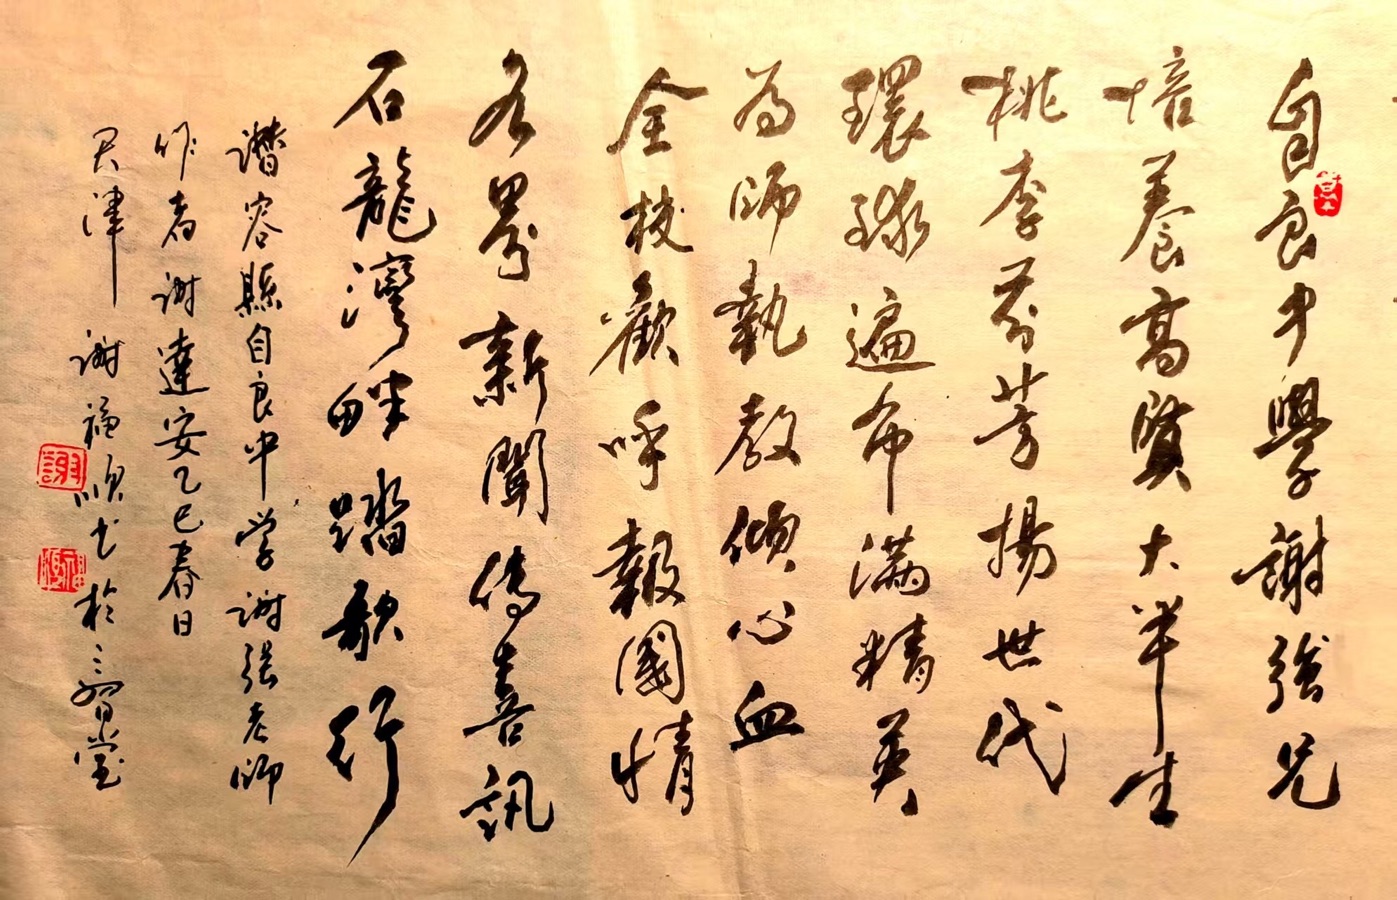 自良中學謝強兄
培養高質大半生
桃李芬芳揚世代
環球遍布满精英
为師執教傾心血
全校歡呼報國情
各界新聞傳喜訊
石龍灣畔踏歌行
容縣自良中学谢强老师
作者谢達安乙巳春日
天津谢福順书於三習堂
謝